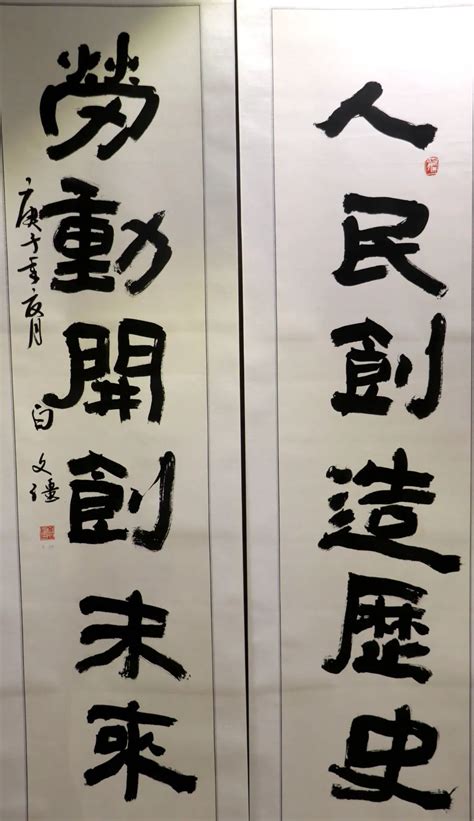 人民創造歷史
勞動開創未來
庚子年夏月
白文疆